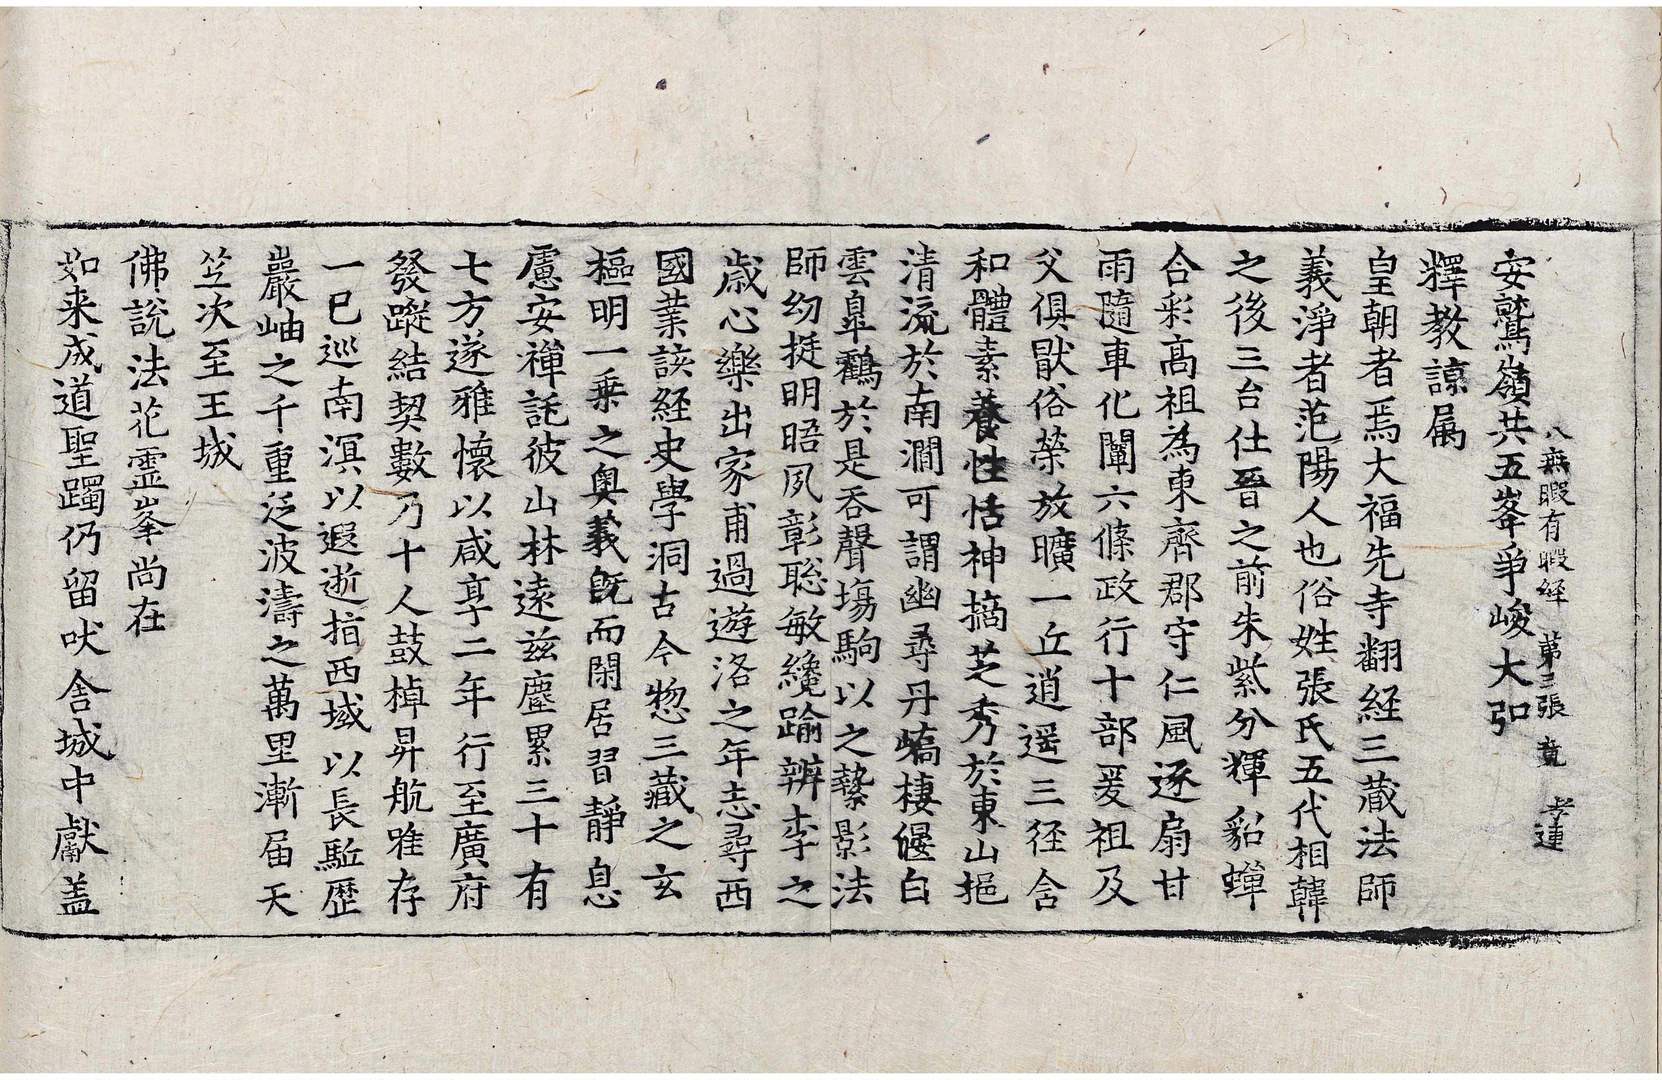 八無暇有暇経 第三張 竟 孝連
安鷲嶺共五峯爭峻大弘
釋教諒屬
皇朝者焉大福先寺翻経三蔵法師
義淨者范陽人也俗姓張氏五代相韓
之後三台仕晉之前朱紫分輝貂蟬
合彩高祖為東齊郡守仁風逐扇甘
雨隨車化闡六條政行十部爰祖及
父俱猒俗榮放曠一丘逍遥三径含
和體素養性恬神摘芝秀於東山挹
清流於南澗可謂幽尋丹嶠棲偃白
雲臯鸖於是吞聲塲駒以之縶影法
師幼挺明晤夙彰聡敏纔踰辨李之
歲心樂出家甫過遊洛之年志尋西
國業該経史學洞古今惣三藏之玄
樞明一乗之奧義既而閑居習靜息
慮安禪託彼山林遠兹塵累三十有
七方遂雅懷以咸亨二年行至廣府
發蹤結契數乃十人鼓棹昇航唯存
一已巡南溟以遐逝指西域以長駈歴
巖岫之千重泛波濤之萬里漸届天
笁次至王城
佛說法花靈峯尚在
如来成道聖躅仍留吠舍城中獻盖